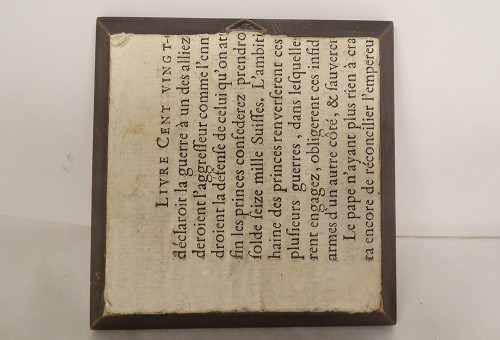 LIVRE CENT VINGT-
déclaroit la guerre à un des alliez
deroient l'aggresseur comme l'enn
droient la défense de celui qu'on att
fin les princes confederez prendro
solde seize mille Suisses. L'ambiti
haine des princes renverserent ces
plusieurs guerres, dans lesquelle
rent engagez, obligerent ces infid
armes d'un autre côté, & sauveren
Le pape n'ayant plus rien à cra
ta encore de réconcilier l'empereu